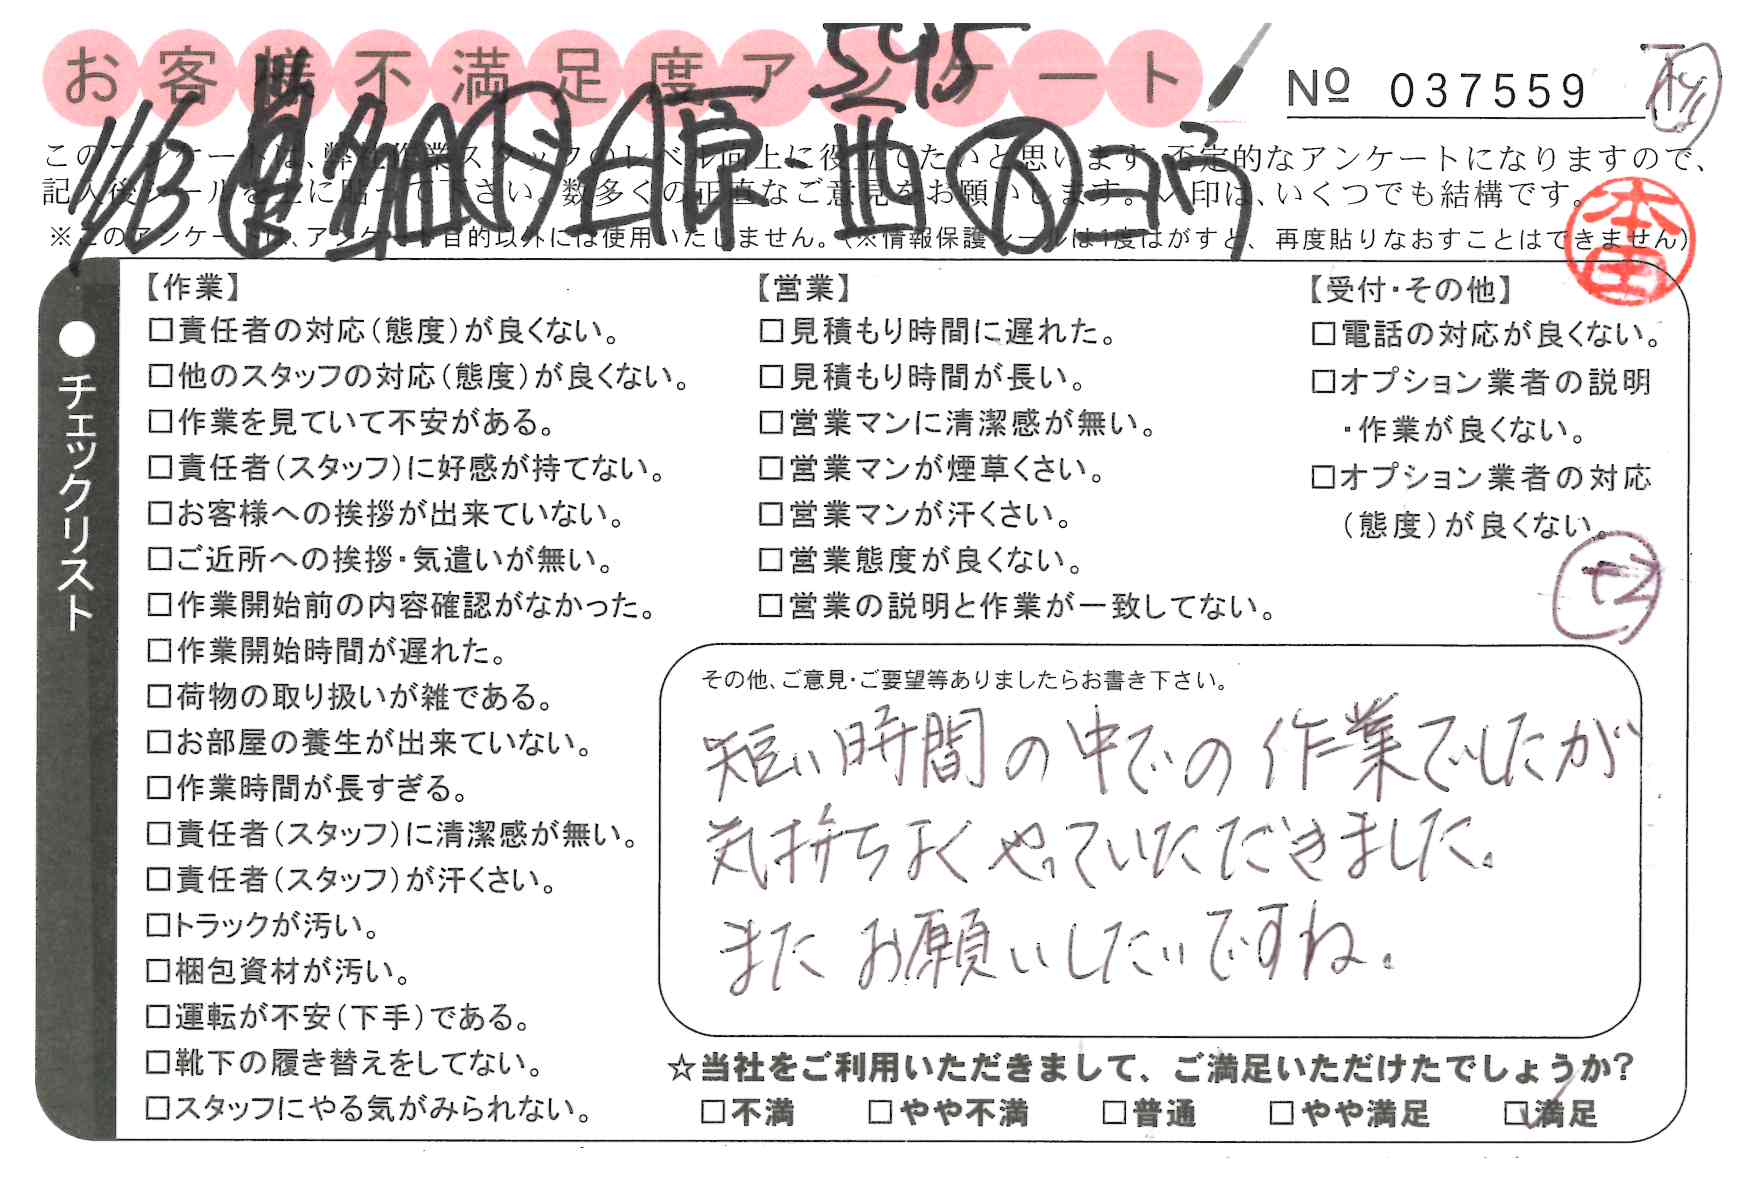 お客様不満足度アンケート
545
№ 037559
このアンケートは、弊社作業スタッフのレベル向上に役立てたいと思います。否定的なアンケートになりますので、
記入後シールを上に貼って下さい。数多くの正直なご意見をお願いします。✓印は、いくつでも結構です。
※このアンケートは、アンケート目的以外には使用いたしません。(※情報保護シールは1度はがすと、再度貼りなおすことはできません)
本田
●チェックリスト
【作業】
□責任者の対応(態度)が良くない。
□他のスタッフの対応(態度)が良くない。
□作業を見ていて不安がある。
□責任者(スタッフ)に好感が持てない。
□お客様への挨拶が出来ていない。
□ご近所への挨拶・気遣いが無い。
□作業開始前の内容確認がなかった。
□作業開始時間が遅れた。
□荷物の取り扱いが雑である。
□お部屋の養生が出来ていない。
□作業時間が長すぎる。
□責任者(スタッフ)に清潔感が無い。
□責任者(スタッフ)が汗くさい。
□トラックが汚い。
□梱包資材が汚い。
□運転が不安(下手)である。
□靴下の履き替えをしてない。
□スタッフにやる気がみられない。
【営業】
□見積もり時間に遅れた。
□見積もり時間が長い。
□営業マンに清潔感が無い。
□営業マンが煙草くさい。
□営業マンが汗くさい。
□営業態度が良くない。
□営業の説明と作業が一致してない。
【受付・その他】
□電話の対応が良くない。
□オプション業者の説明
・作業が良くない。
□オプション業者の対応
(態度)が良くない。
その他、ご意見・ご要望等ありましたらお書き下さい。
短い時間の中での作業でしたが
気持ちよくやっていただきました。
またお願いしたいですね。
☆当社をご利用いただきまして、ご満足いただけたでしょうか?
□不満 □やや不満 □普通 □やや満足 ☑満足